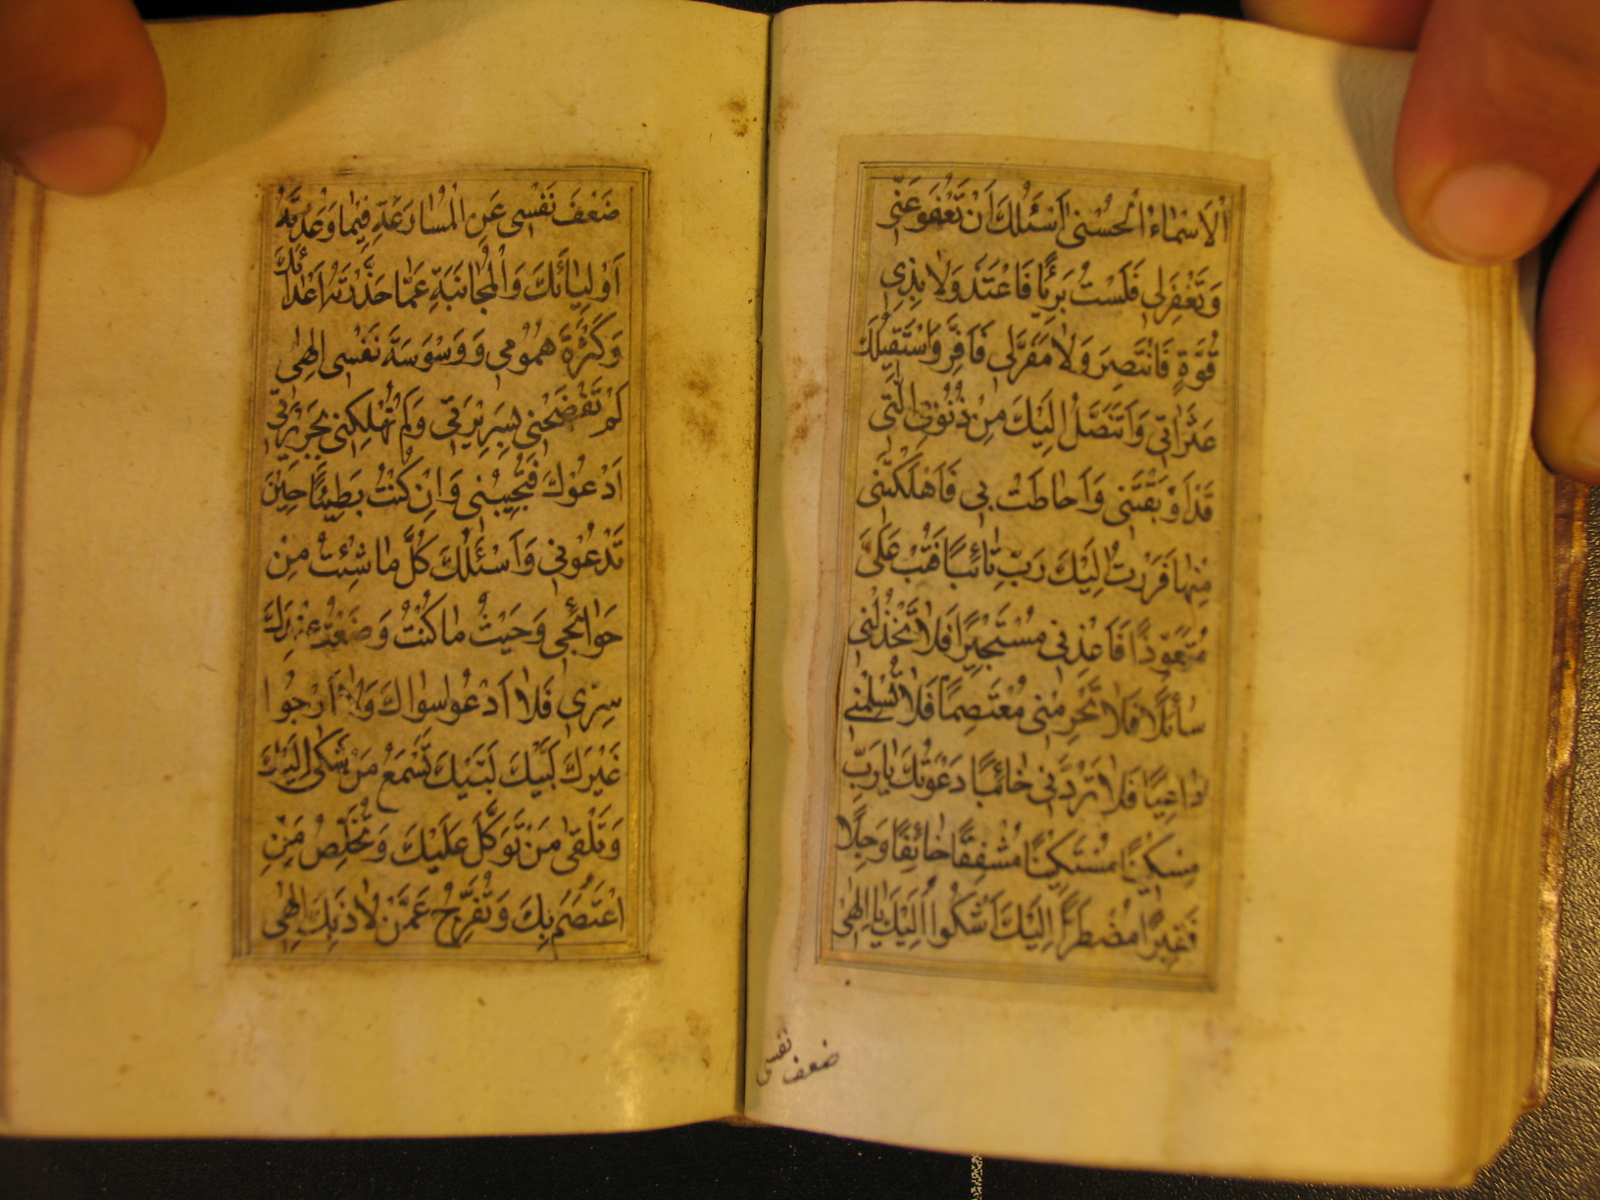 اَلْاَسْمٰاءُ الْحُسْنىٰ اَسْئَلُكَ اَنْ تَعْفُوَ عَنّٖى
وَ تَغْفِرَلٖى فَلَسْتُ بَرٖئًا فَاَعْتَذِرَ وَلٰا بِذٖى
قُوَّةٍ فَاَنْتَصِرَ وَلٰا مَفَرَّلٖى فَاَفِرَّ وَاَسْتَقٖيلُكَ
عَثَرٰاتٖى وَ اَتَنَصَّلُ اِلَيْكَ مِنْ ذُنُوبِىَ الَّتٖى
قَدْ اَوْبَقَتْنٖى وَ اَحٰاطَتْ بٖى فَاَهْلَكَتْنٖى
مِنْهٰا فَرَرْتُ اِلَيْكَ رَبِّ تٰائِبًا فَتُبْ عَلَىَّ
مُتَعَوِّذًا فَاَعِذْنٖى مُسْتَجٖيرًا فَلٰا تَخْذُلْنٖى
سٰائِلًا فَلٰا تَحْرِمْنٖى مُعْتَصِمًا فَلٰا تُسْلِمْنٖى
دٰاعِيًا فَلٰا تَرُدَّنٖى خٰائِبًا دَعَوْتُكَ يٰارَبِّ
مِسْكٖينًا مُسْتَكٖينًا مُشْفِقًا خٰائِفًا وَجِلًا
فَقٖيرًا مُضْطَرًّا اِلَيْكَ اَشْكُوا اِلَيْكَ يٰا اِلٰهٖى
ضعف نفسى
ضَعْفَ نَفْسٖى عَنِ الْمُسٰارَعَةِ فٖيمٰا وَعَدْتَهُ
اَوْلِيٰائَكَ وَالْمُجٰانَبَةِ عَمّٰا حَذَّرْتَهُ اَعْدٰائَكَ
وَ كَثْرَةَ هُمُومٖى وَ وَسْوَسَةَ نَفْسٖى اِلٰهٖى
لَمْ تَفْضَحْنٖى بِسَرٖيرَتٖى وَلَمْ تُهْلِكْنٖى بِجَرٖيرَتٖى
اَدْعُوكَ فَتُجٖيبُنٖى وَ اِنْ كُنْتُ بَطٖيئًا حٖينَ
تَدْعُونٖى وَ اَسْئَلُكَ كُلَّ مٰا شِئْتُ مِنْ
حَوٰائِجٖى وَ حَيْثُ مٰا كُنْتُ وَضَعْتُ عِنْدَكَ
سِرّٖى فَلٰا اَدْعُو سِوٰاكَ وَلٰا اَرْجُوا
غَيْرَكَ لَبَّيْكَ لَبَّيْكَ تَسْمَعُ مَنْ شَكىٰ اِلَيْكَ
وَ تَلْقىٰ مَنْ تَوَكَّلَ عَلَيْكَ وَ تُخَلِّصُ مَنِ
اعْتَصَمَ بِكَ وَ تُفَرِّجُ عَمَّنْ لٰاذَ بِكَ اِلٰهٖى